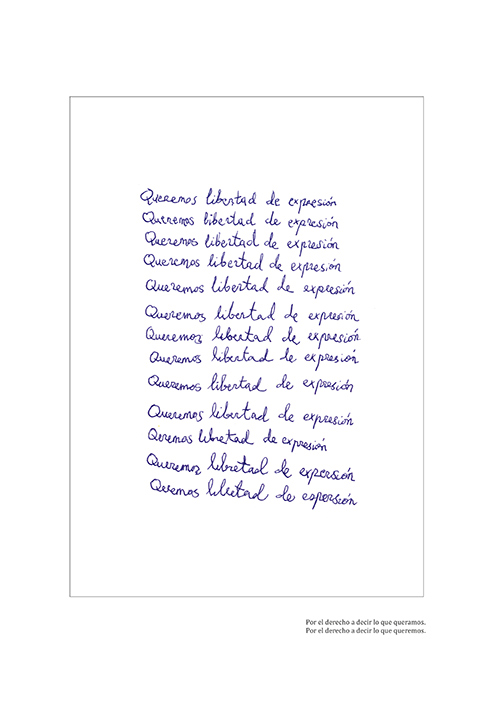 Queremos libertad de expresión
Queremos libertad de expresión
Queremos libertad de expresión
Queremos libertad de expresión
Queremos libertad de expresión
Queremos libertad de expresión
Queremoz libertad de expresión
Queremos libertad de expresión
Queremos libertad de expresión
Queremos libertad de expresión
Qeremos libretad de expresión
Queremoz libretad de expersión
Qeremos libretad de expersión
Por el derecho a decir lo que queramos.
Por el derecho a decir lo que queremos.